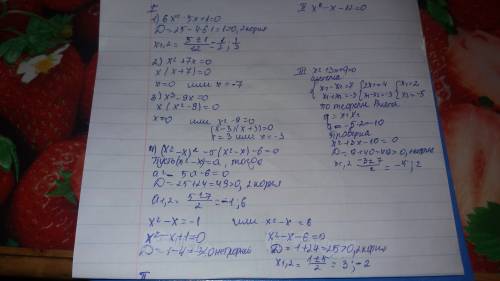 I
1) 6x²-5x+1=0
D=25-4·6·1=1>0, 2 корня
x1,2 = 5±1/12 = 1/2; 1/3
2) x²+7x=0
x(x+7)=0
x=0 или x=-7
3) x³-9x=0
x(x²-9)=0
x=0 или x²-9=0
(x-3)(x+3)=0
x=3 или x=-3
4) (x²-x)²-5(x²-x)-6=0
Пусть (x²-x)=a, тогда
a²-5a-6=0
D=25+24=49>0, 2 корня
a1,2 = 5±7/2 = -1; 6
x²-x=-1 или x²-x=6
x²-x+1=0
D=1-4=-3<0 нет корней
x²-x-6=0
D=1+24=25>0, 2 корня
x1,2 = 1±5/2 = 3; -2
II
II x²-x-12=0
III x²+3x+q=0
x1-x2=7
x1+x2=-3
2x1=4
x1-x2=
x1=2
x2=-5
По теореме Виета
q=x1·x2
q=-5·2=-10
Проверка
x²+3x-10=0
D=9+40=49>0, 2 корня
x1,2 = -3±7/2 = -5; 2